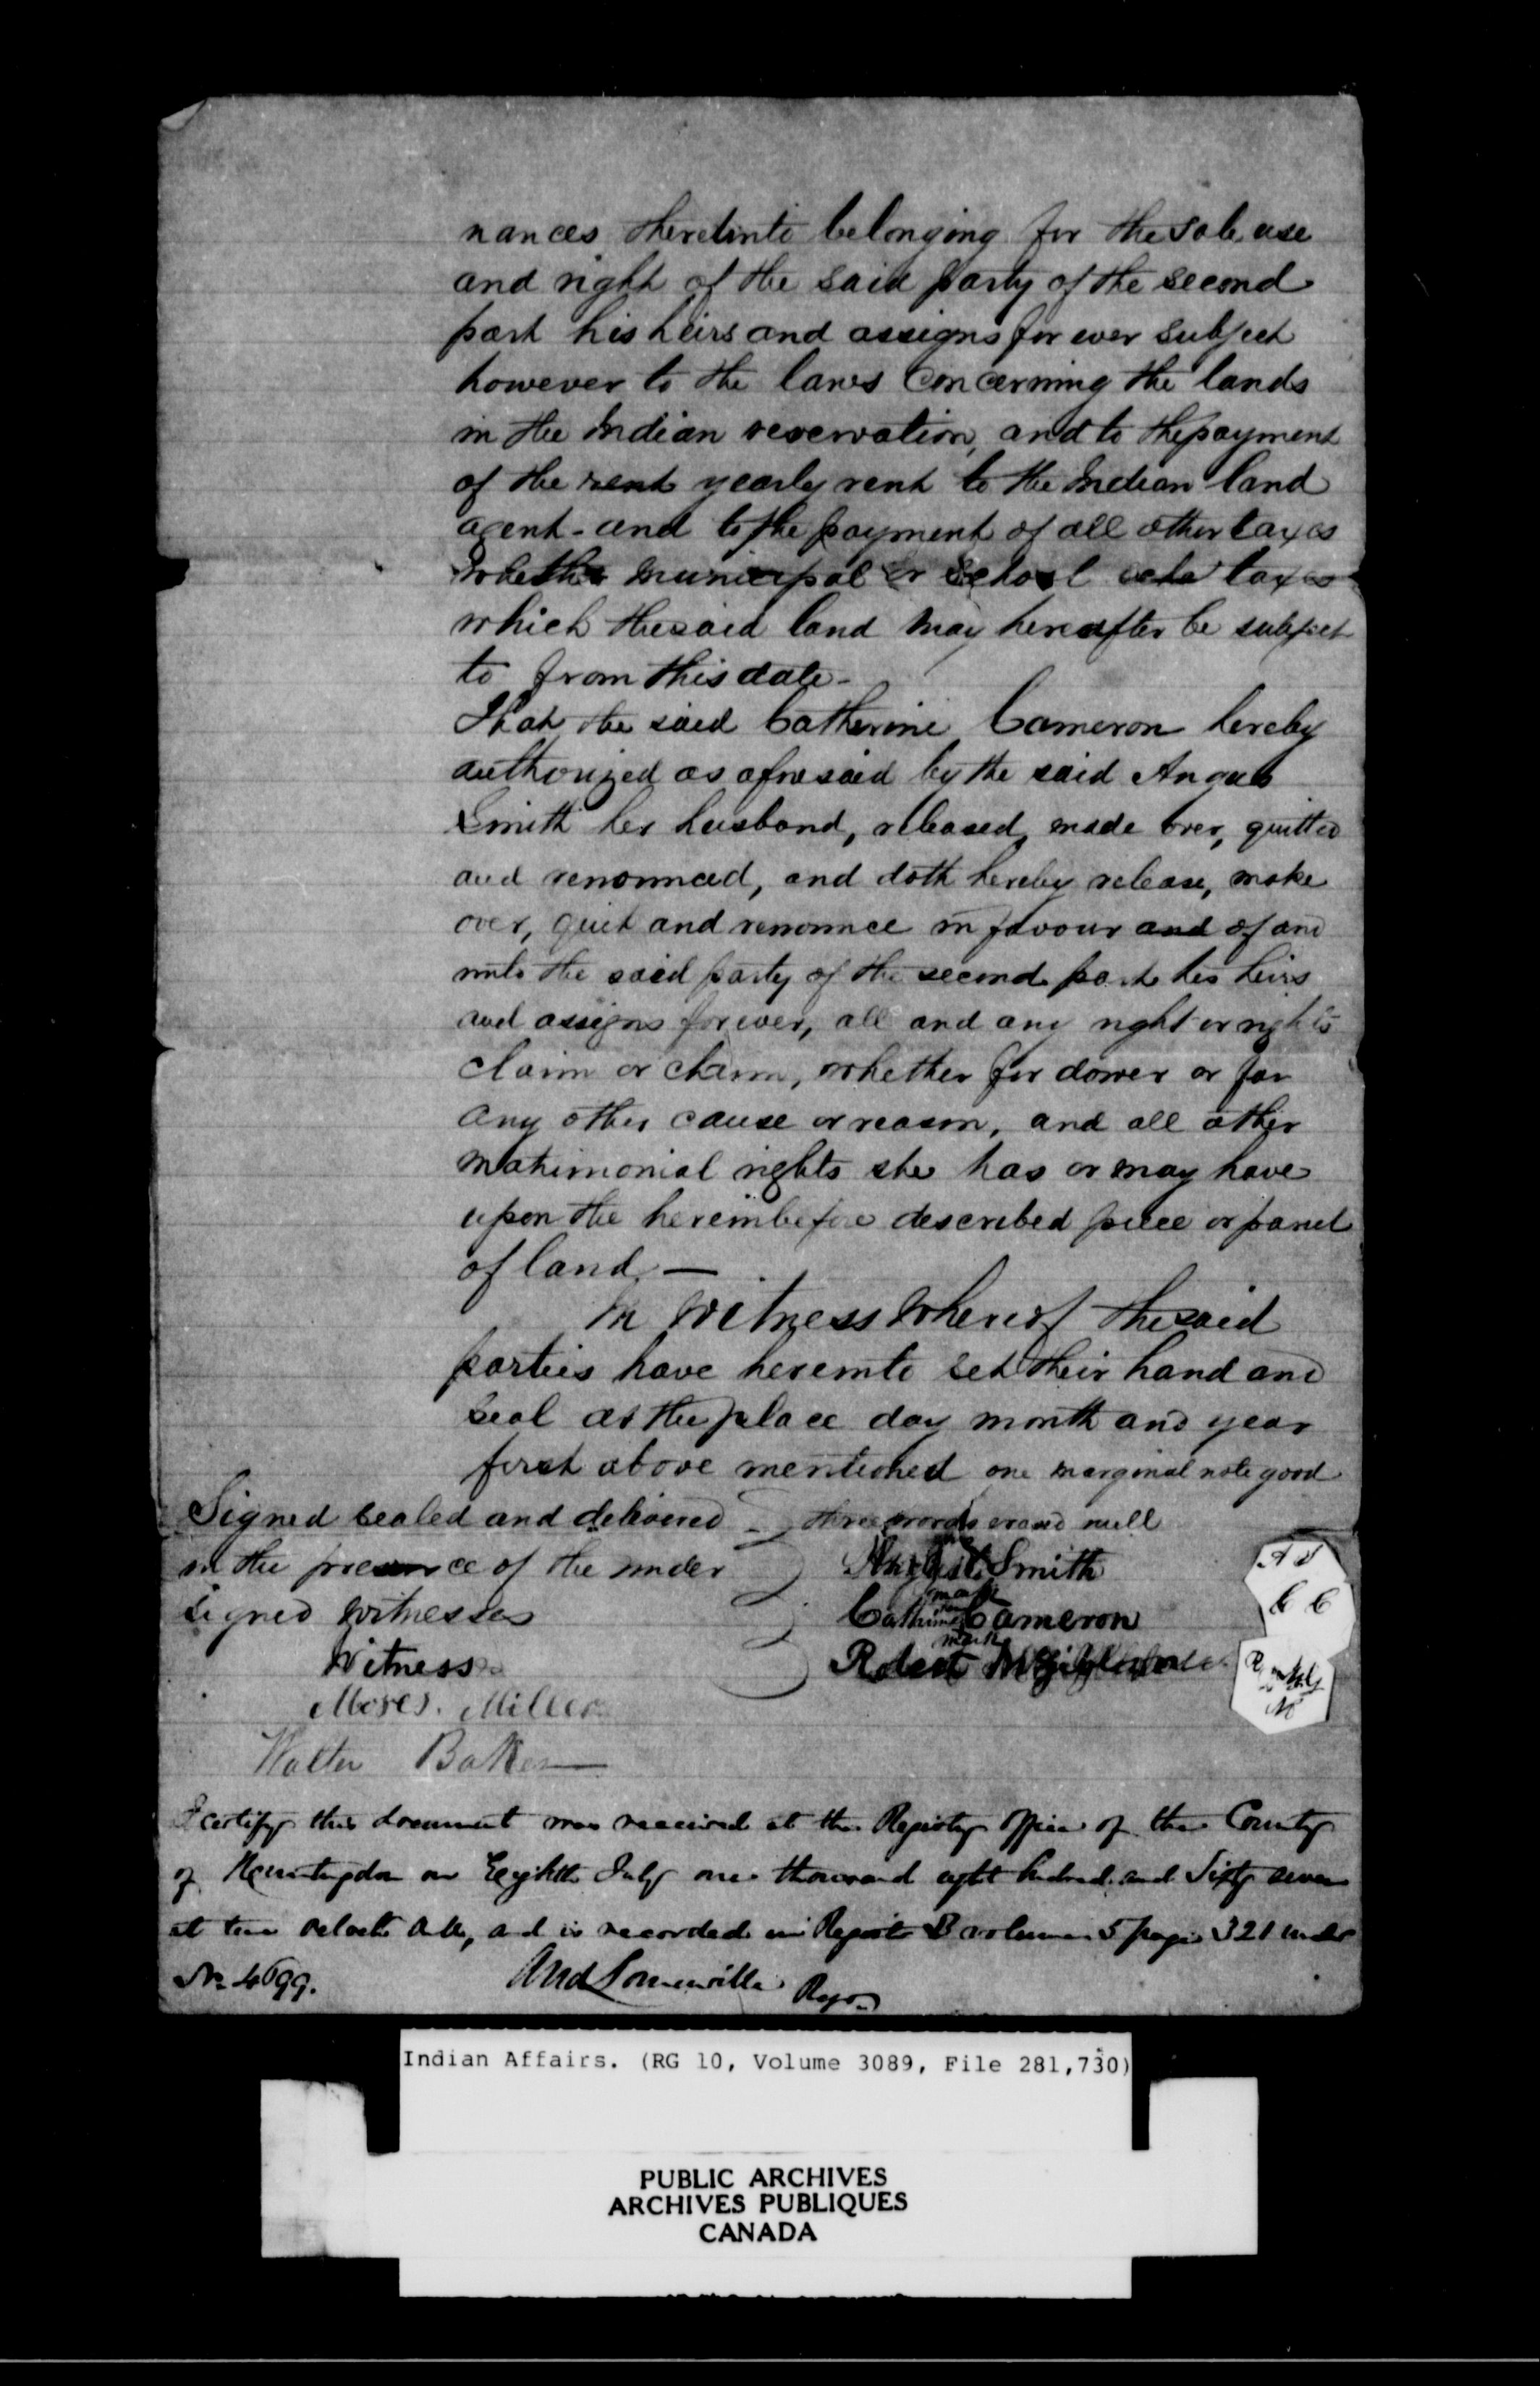 nances thereunto belonging for the sole use
and right of the said party of the second
part his heirs and assigns for ever subject
however to the laws concerning the lands
in the Indian reservation, and to the payment
of the rent yearly rent to the Indian land
agent - and to the payment of all other taxes
whether municipal or school taxes
which the said land may hereafter be subject
to from this date -
That the said Catherine Cameron hereby
authorized as aforesaid by the said Angus
Smith her husband, released, made over, quitted
and renounced, and doth hereby release, make
over, quit and renounce in favour and of and
unto the said party of the second part his heirs
and assigns forever, all and any right or rights
claim or claim, whether for dower or for
any other cause or reason, and all other
matrimonial rights she has or may have
upon the hereinbefore described piece or parcel
of land. —
In Witness Whereof the said
parties have hereunto set their hand and
seal at the place day month and year
first above mentioned one marginal note good
three words erased null
Signed sealed and delivered
in the presence of the under
signed witnesses
Angus Smith
mark
Catherine Cameron
mark
Robert
A S
C C
Witness
Moses. Miller
Walter Baker
I certify this document was received at the Registry Office of the County
of Huntingdon on Eighth July one thousand eight hundred and Sixty seven
at ten oclock A.M., and is recorded in Register B volume 5 page 321 under
No. 4699.
And Somerville Regr.
Indian Affairs. (RG 10, Volume 3089, File 281,730)
PUBLIC ARCHIVES
ARCHIVES PUBLIQUES
CANADA